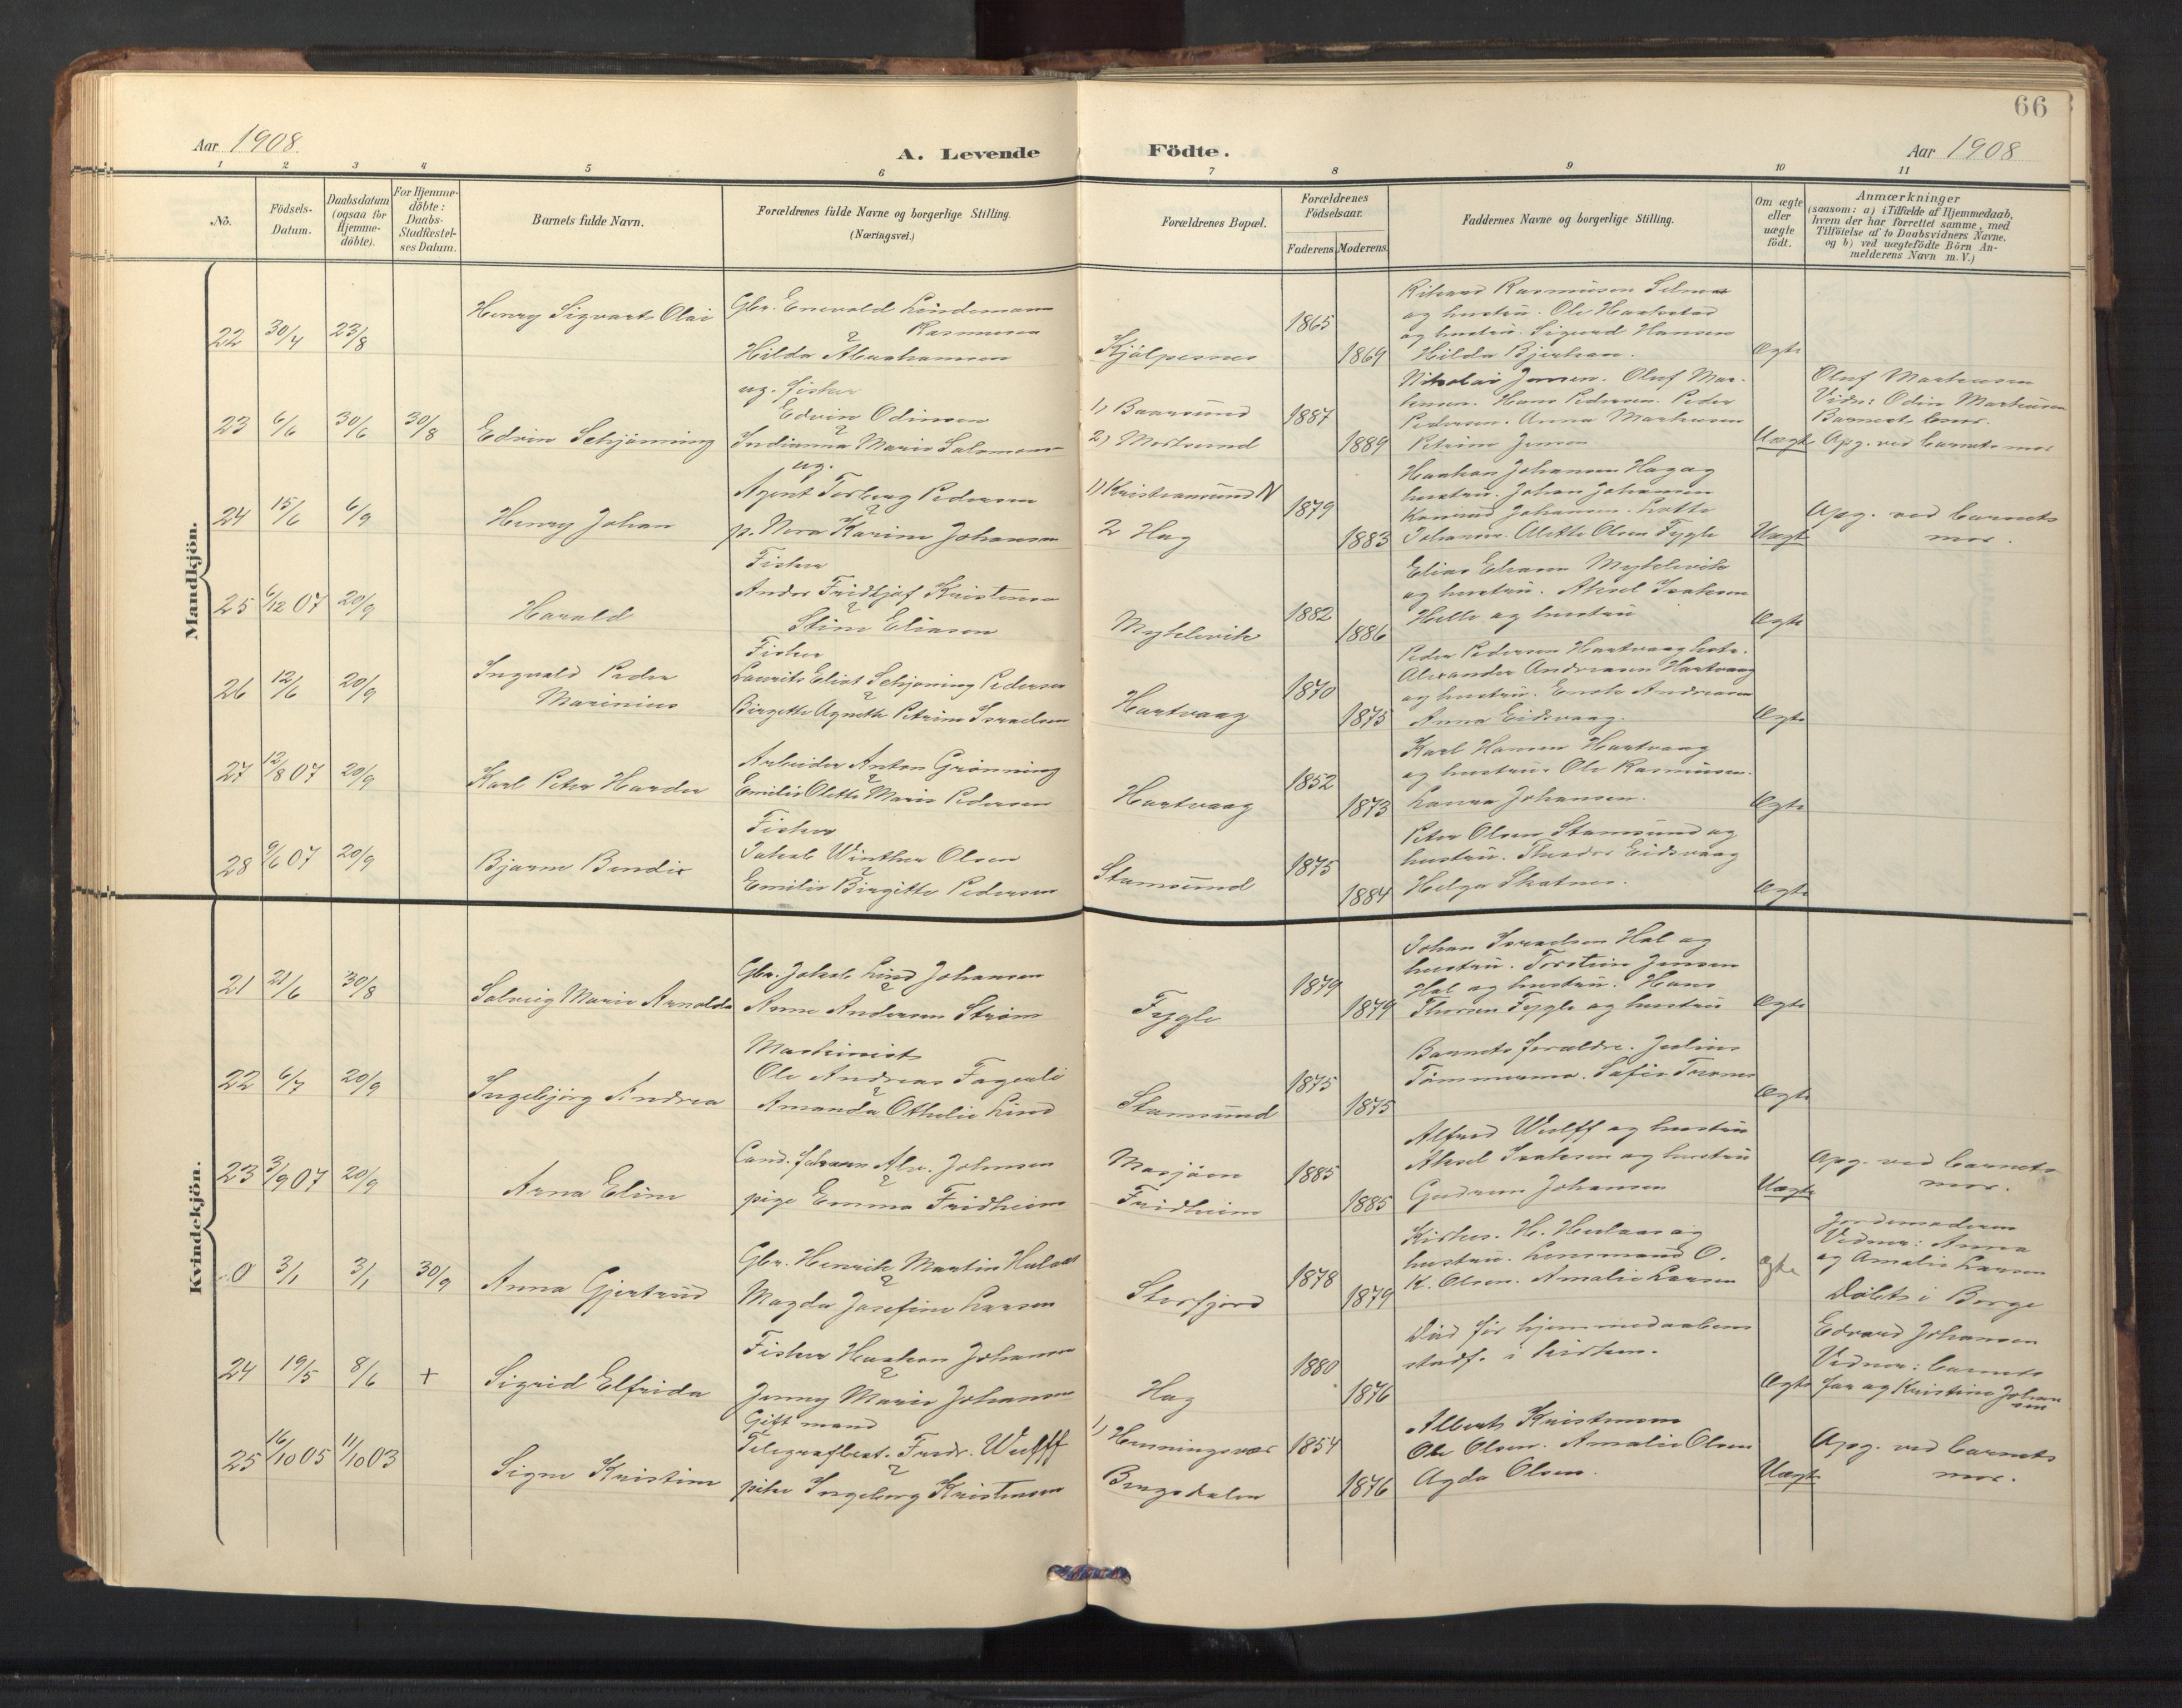 66
Aar 1908.
A. Levende
Födte.
Aar 1908
1 2 3 4 5 6 7 8 9 10 11
No.
Födsels-
Datum.
Daabsdatum
(ogsaa for
Hjemme-
döbte).
For Hjemme-
döbte:
Daabs-
Stadfæstel-
ses Datum.
Barnets fulde Navn.
Forældrenes fulde Navne og borgerlige Stilling.
(Næringsvei.)
Forældrenes Bopæl.
Forældrenes
Födselsaar.
Faderens. Moderens.
Faddernes Navne og borgerlige Stilling.
Om ægte
eller
uægte
födt.
Anmærkninger
(saasom: a) i Tilfælde af Hjemmedaab,
hvem der har forrettet samme, med
Tilföielse af to Daabsvidners Navne,
og b) ved uægtefödte Börn An-
melderens Navn m. V.)
Mandkjön.
22 30/4 23/8
Henry Sigvart Olai
Gbr. Enevald Lindemann
Rasmussen
Hilda Abrahamsen
1865
1869
Rikard Rasmussen
og hustru. Ole
og hustru. Sigurd Hansen
Hilda
Ægte
23 6/6 30/6 30/8
Edvin Schjønning
ug. fisker
Edvin Odinsen
Indianna Marie
1) Baarsund
2) Mortsund
1887
1889
Nikolai Jensen. Oluf Mar-
Hans Pedersen. Peder
Pedersen. Anna
Petrine Jensen
Uægte
Oluf
Vidn: Odin
Barnets
Opg. ved barnets mor
24 15/6 6/9
Henry Johan
ug.
Agent Torberg Pedersen
p. Nora Karine Johansen
1) Kristiansund N
2 Hag
1879
1883
Haakon Johansen Hag og
hustru. Johan Johansen
Konrad Johansen. Lotte
Johansen. Alette Olsen Fygle
Uægt
Opg. ved barnets
mor.
25 6/12 07 20/9
Harald
Fisker
Andor Fridtjof Kristensen
Stine Eliasen
Myklevik
1882
1886
Elias Eliasen Myklevik
og hustru. Aksel Isaksen
Helle og hustru
Ægte
26 12/6 20/9
Ingvald Peder
Marinius
Fisker
Laurits Eliot Schjøning Pedersen
Birgitte Agnethe Petrine Israelsen
Hartvaag
1870
1875
Peder Pedersen Hartvaag
Alexander Andreasen Hartvaag
og hustru. Andreasen
Anna Eidsvaag.
Ægte
27 12/8 07 20/9
Karl Peter Harder
Arbeider Anton Grønning
Emilie Olette Marie Pedersen
Hartvaag
1852
1873
Karl Hansen Hartvaag
og hustru. Ole Rasmussen.
Laura Johansen.
Ægte
28 9/6 07 20/9
Bjarne Bendix
Fisker
Jakob Winther Olsen
Emilie Birgitte Pedersen
Stamsund
1875
1884
Peter Olsen Stamsund og
hustru. Theodor Eidsvaag
Helga Skatnes.
Ægte
Kvindekjön.
21 21/6 30/8
Solveig Marie Arnolda
Gbr. Jakob Lind Johansen
Anne Andersen Strøm
Fygle
1879
1879
Johan Israelsen Hol og
hustru. Torstein Jensen
Hol og hustru. Hans
Thoresen Fygle og hustru
Ægte
22 6/7 20/9
Ingebjørg Andrea
Maskinist
Ole Andreas Fagerli
Amanda Othelie Lind
Stamsund
1875
1875
Barnets forældre. Julius
Tømmermo. Sofie
Ægte
23 3/9 07 20/9
Arna Eline
Cand. Alv. Johnsen
pige Emma Fridheim
Mosjøen
Fridheim
1885
1885
Alfred Wulff og hustru
Aksel Isaksen og hustru
Gudrun Johansen
Uægte
Opg. ved barnets
mor.
0 3/1 3/1 30/9
Anna Gjertrud
Gbr. Henrik Martin Hulaas
Magda Josefine Larsen
Storfjord
1878
1879
Kirkes. H. Hulaas og
hustru. Lensmand O.
K. Olsen. Amalie Larsen
ægte
Jordemoderen
Vidner: Anna
og Amalie Larsen
Døbt i Borge
24 19/5 8/6 +
Sigrid Elfrida
Fisker Haakon Johansen
Jenny Marie Johansen
Hag
1880
1876
Død før hjemmedaabens
stadf. i kirken.
Ægte
Edvard Johansen
Vidner: barnets
far og Kristine Johan
sen
25 16/10 05 11/10 03
Signe Kristine
Gift mand
Telegrafbest. Fredr. Wulff
pike Ingeborg Kristensen
1) Henningsvær
1854
1876
Albert Kristensen
Ole Olsen. Amalie Olsen
Agda Olsen.
Uægte
Opg. ved barnets
mor.